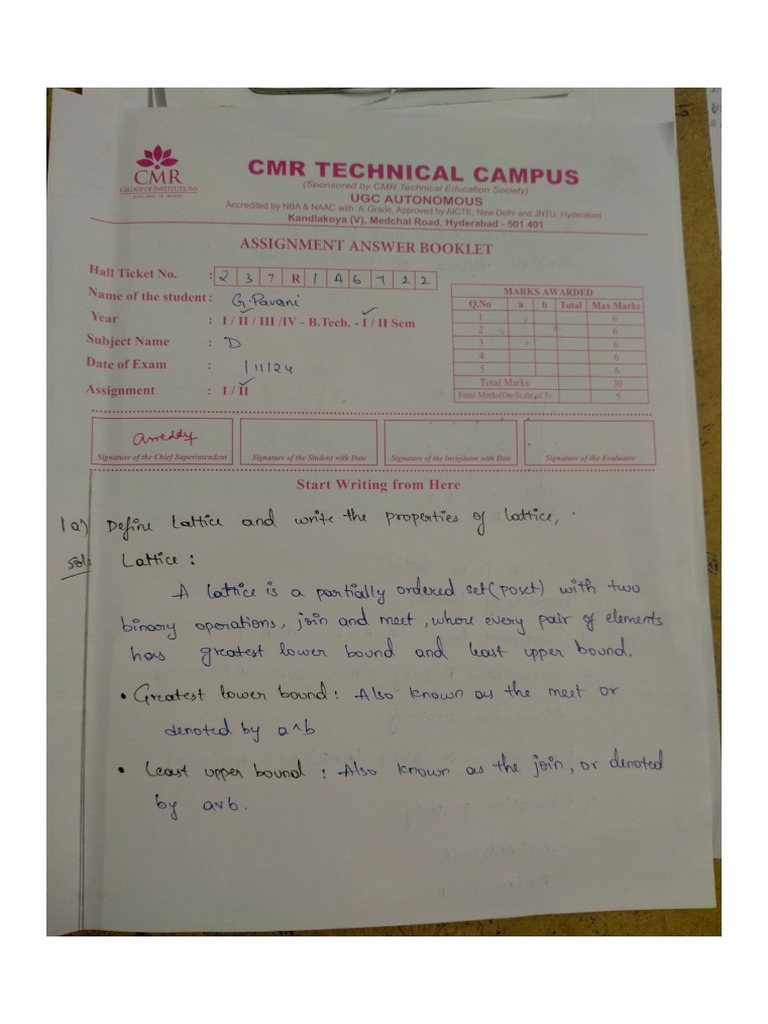 CMR
GROUP OF INSTITUTIONS
EXPLORE TO INVENT
CMR TECHNICAL CAMPUS
(Sponsored by CMR Technical Education Society)
UGC AUTONOMOUS
Accredited by NBA & NAAC with 'A' Grade, Approved by AICTE, New Delhi and JNTU, Hyderabad
Kandlakoya (V), Medchal Road, Hyderabad - 501 401
ASSIGNMENT ANSWER BOOKLET
Hall Ticket No. : 2 3 7 R 1 A 6 7 2 2
Name of the student : G. Pavani
Year : I / II / III /IV - B.Tech. - I / II Sem
Subject Name : D
Date of Exam : /11/24
Assignment : I / II
MARKS AWARDED
Q.No a b Total Max Marks
1 6
2 6
3 6
4 6
5 6
Total Marks 30
Final Marks(On Scale of 5) 5
Signature of the Chief Superintendent
Signature of the Student with Date
Signature of the Invigilator with Date
Signature of the Evaluator
Start Writing from Here
1 a) Define Lattice and write the properties of lattice,
Sol: Lattice :
A lattice is a partially ordered set(poset) with two
binary operations, join and meet, where every pair of elements
has greatest lower bound and least upper bound.
• Greatest lower bound : Also known as the meet or
denoted by a^b
• Least upper bound : Also known as the join, or denoted
by avb.